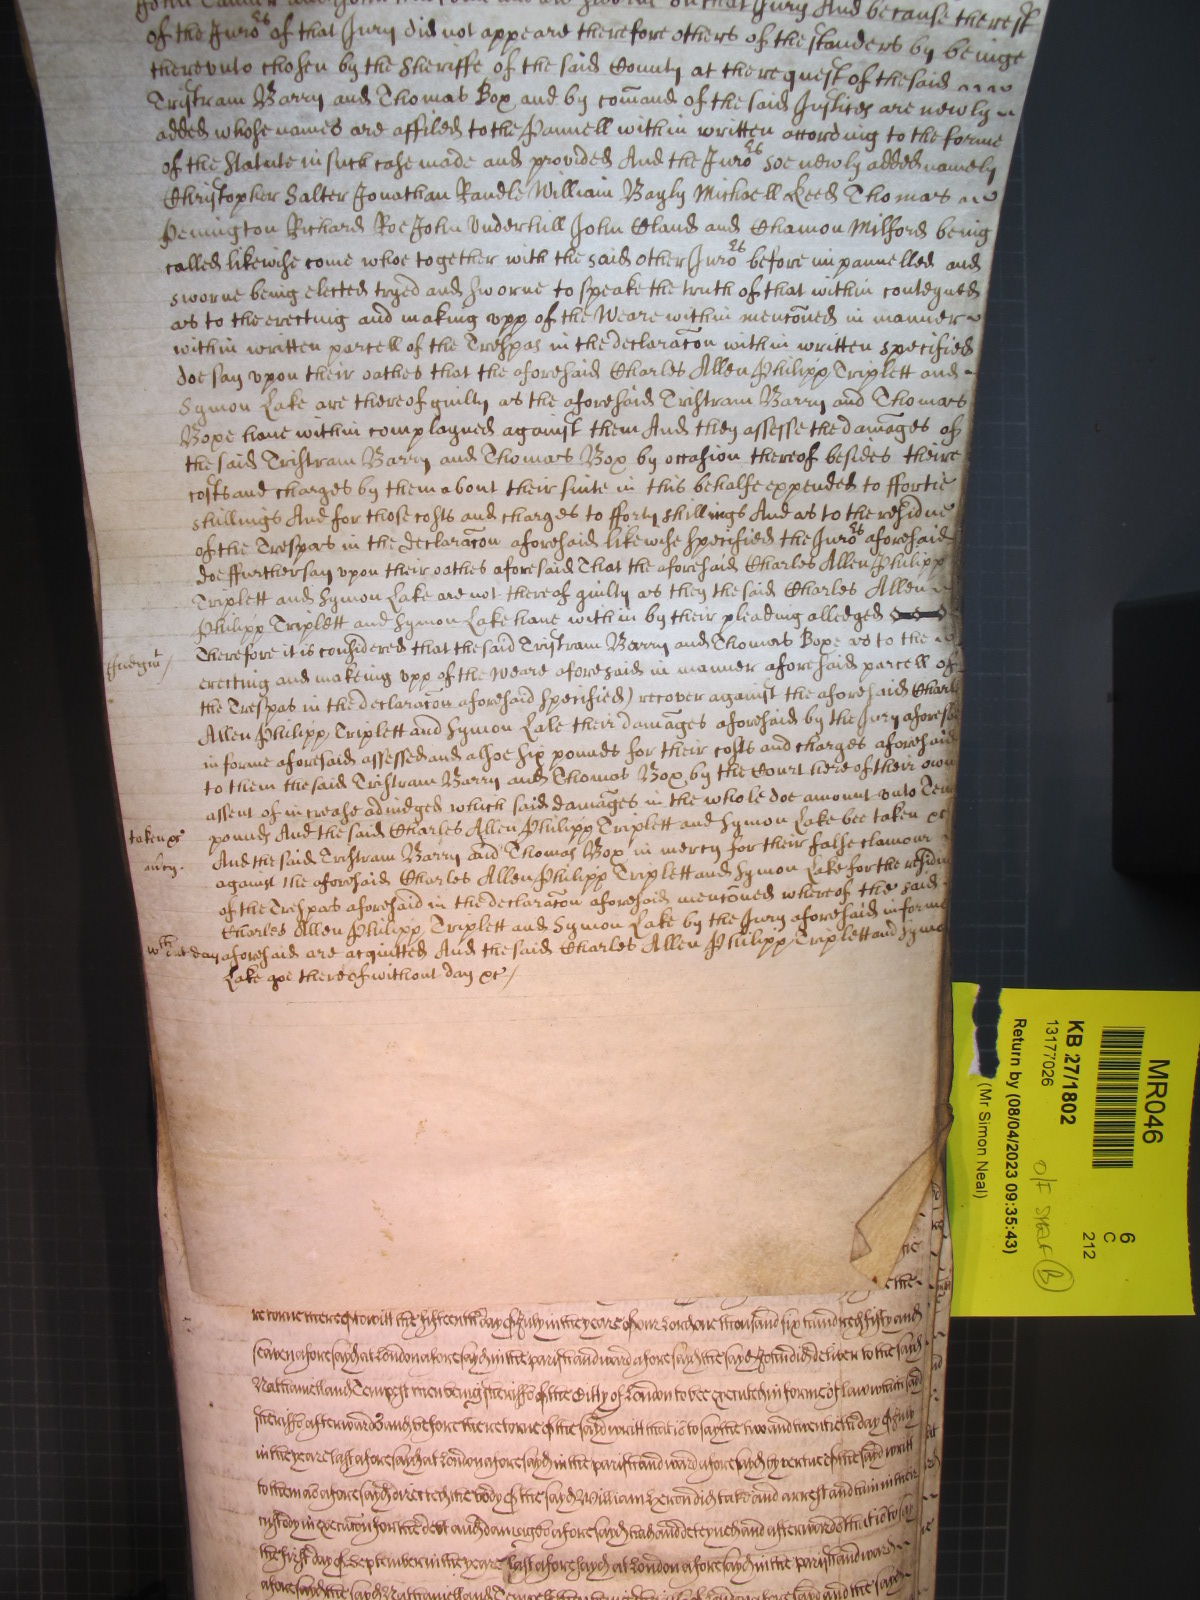 of the Juro rs of that Jury did not appeare therefore others of the standers by beinge
therevnto chosen by the Sheriffe of the said County at the request of the said
Tristram Barry and Thomas Box and by comand of the said Justices are newly
added whose names are affiled to the Pannell within written according to the forme
of the Statute in such case made and provided And the Juro rs soe newly added namely
Christopher Salter Jonathan Randle William Bayly Michaell Keed Thomas
Penington Richard Roe John Vnderhill John Eland and Milford being
called likewise come whoe together with the said other Juro rs before impannelled and
sworne being elected tryed and sworne to speake the truth of that within conteyned
as to the erecting and making vpp of the Weare within menconed in manner
within written parcell of the Trespas in the declaracon within written specified
doe say vpon their oathes that the aforesaid Charles Allen Philipp Triplett and
Symon Lake are thereof guilty as the aforesaid Tristram Barry and Thomas
Boxe haue within complayned against them And they assesse the damages of
the said Tristram Barry and Thomas Box by occasion thereof besides theire
costs and charges by them about their suite in this behalfe expended to ffortie
shillings And for those costs and charges to fforty shillings And as to the residue
of the Trespas in the declaracon aforesaid likewise specified the Juro rs aforesaid
doe ffurther say vpon their oathes aforesaid That the aforesaid Charles Allen Philipp
Triplett and Symon Lake are not thereof guilty as they the said Charles Allen
Philipp Triplett and Symon Lake haue within by their pleading alledged
Therefore it is considered that the said Tristram Barry and Thomas Boxe as to the
erecting and makeing vpp of the Weare aforesaid in manner aforesaid parcell of
the Trespas in the declaracon aforesaid specified) recover against the aforesaid Charles
Allen Philipp Triplett and Symon Lake their damages aforesaid by the Jury aforesaid
in forme aforesaid assessed and alsoe six pounds for their costs and charges aforesaid
to them the said Tristram Barry and Thomas Box by the Court here of their own
assent of increase adiudged which said damages in the whole doe amount vnto Tenn
taken &c
pounds And the said Charles Allen Philipp Triplett and Symon Lake bee taken &c
And the said Tristram Barry and Thomas Box in mercy for their false clamour
against the aforesaid Charles Allen Philipp Triplett and Symon Lake for the residue
of the Trespas aforesaid in the declaracon aforesaid menconed whereof the said
Charles Allen Philipp Triplett and Symon Lake by the Jury aforesaid in forme
aforesaid are acquitted And the said Charles Allen Philipp Triplett and Symon
Lake goe thereof without day &c/
MR046
6
C
212
KB 27/1802
13177026
O/F SHELF B
Return by (08/04/2023 09:35:43)
(Mr Simon Neal)
retorne thereof towitt the fifteenth day of July in the yeare of our Lord one thousand six hundred fifty and
seaven aforesayd at London aforesayd in the parish and ward aforesayd the sayd John did deliver to the sayd
Nathaniell and Tempest then being Sheriffs of the Citty of London to bee executed in forme of law which said
Sheriffs afterwards and before the retorne of the sayd writt that is to say the two and twentieth day of July
in the yeare last aforesayd at London aforesayd in the parish and ward aforesayd by vertue of the sayd writt
to them as aforesayd directed the body of the sayd William did take and arrest and him in their
custody in execucon for the debt and damages aforesayd had and deteyned and afterwards that is to say
the first day of September in the yeare last aforesayd at London aforesayd in the parish and ward